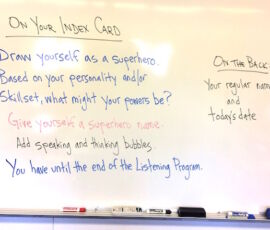 On Your Index Card
Draw yourself as a superhero.
Based on your personality and/or
Skillset, what might your powers be?
Give yourself a superhero name.
Add speaking and thinking bubbles.
You have until the end of the Listening Program.
On the Back
Your regular name
and
today's date